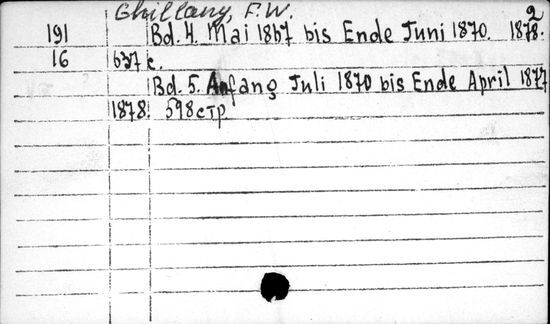 Ghillany, F.W.
2
191 Bd. 4. Mai 1867 bis Ende Juni 1870. 1878.
16 637 c.
Bd. 5. Anfang Juli 1870 bis Ende April 1877
1878. 598 стр